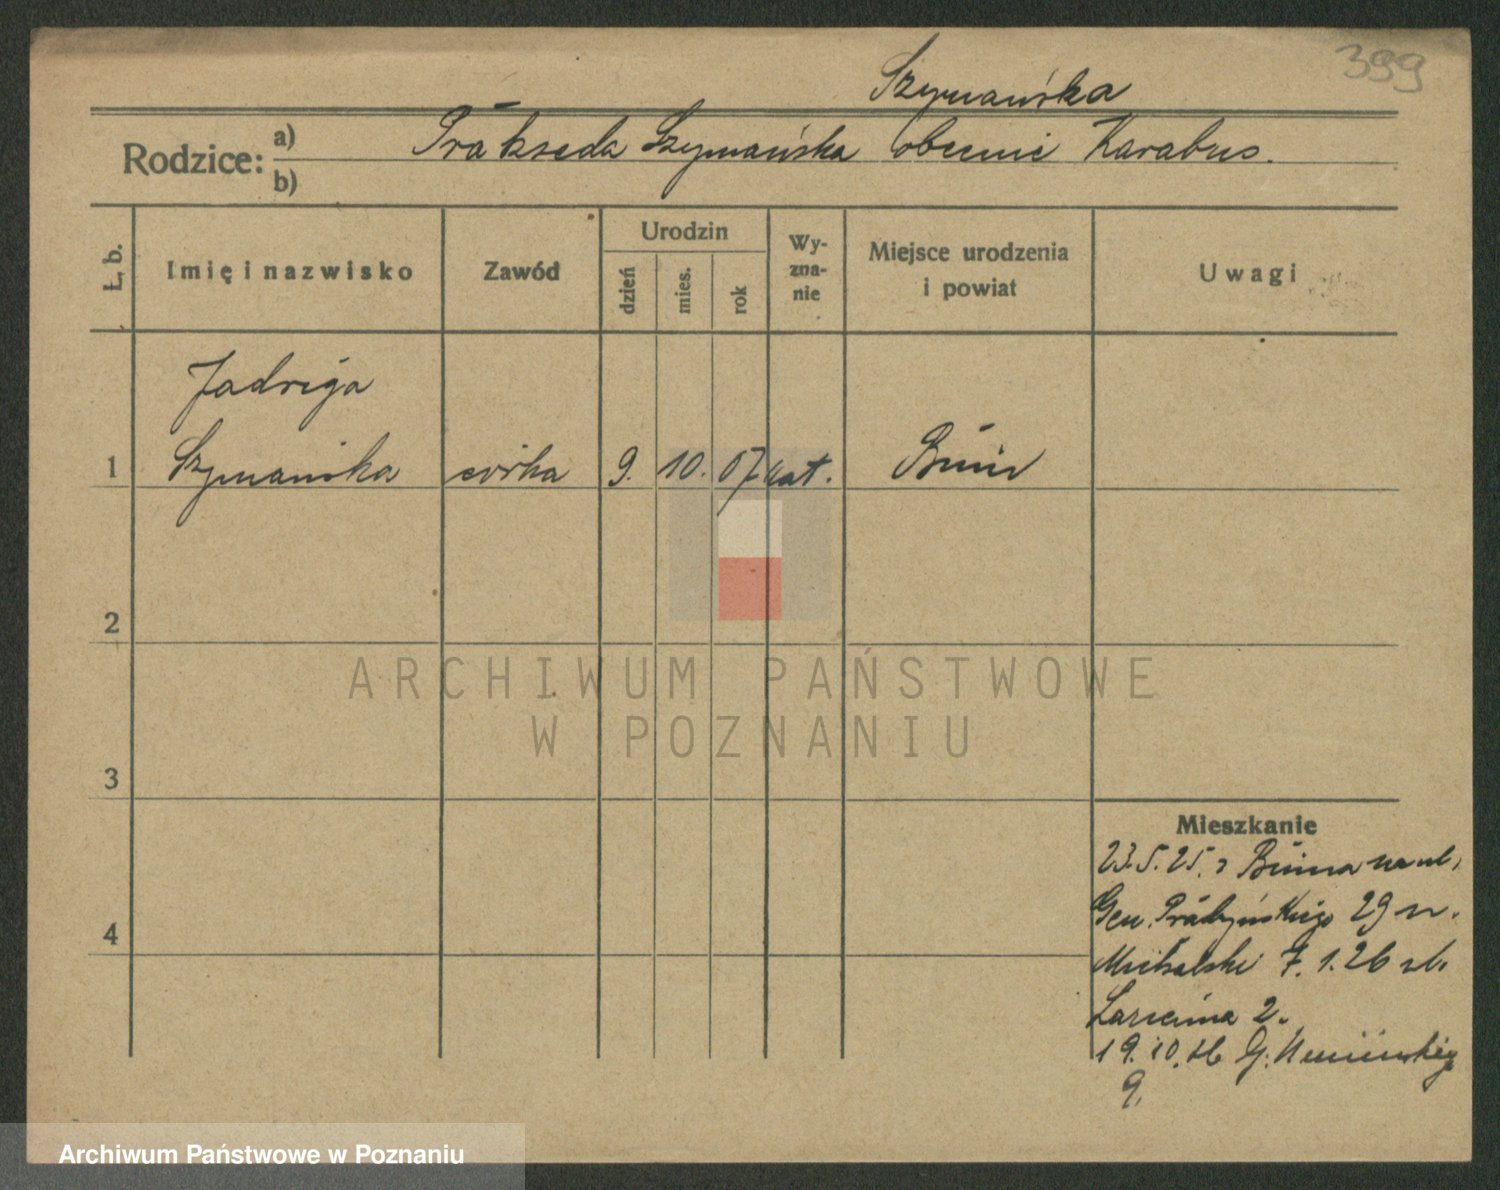 399
Szymańska
Rodzice: a) Prakseda Szymańska obecnie Karabus.
b)
Ł. b.
Imię i nazwisko
Zawód
Urodzin
dzień
mies.
rok
Wy-
zna-
nie
Miejsce urodzenia
i powiat
Uwagi
Jadwiga
1 Szymańska córka 9. 10. 07 kat. Bnin
2
3
4
ARCHIWUM PAŃSTWOWE
W POZNANIU
Mieszkanie
23.5.25. z Bnina na ul.
Gen. Prądzyńskiego 29 n.
Michalski 7.1.26 ul.
Łazienna 2.
19.10.26 G.
9.
Archiwum Państwowe w Poznaniu